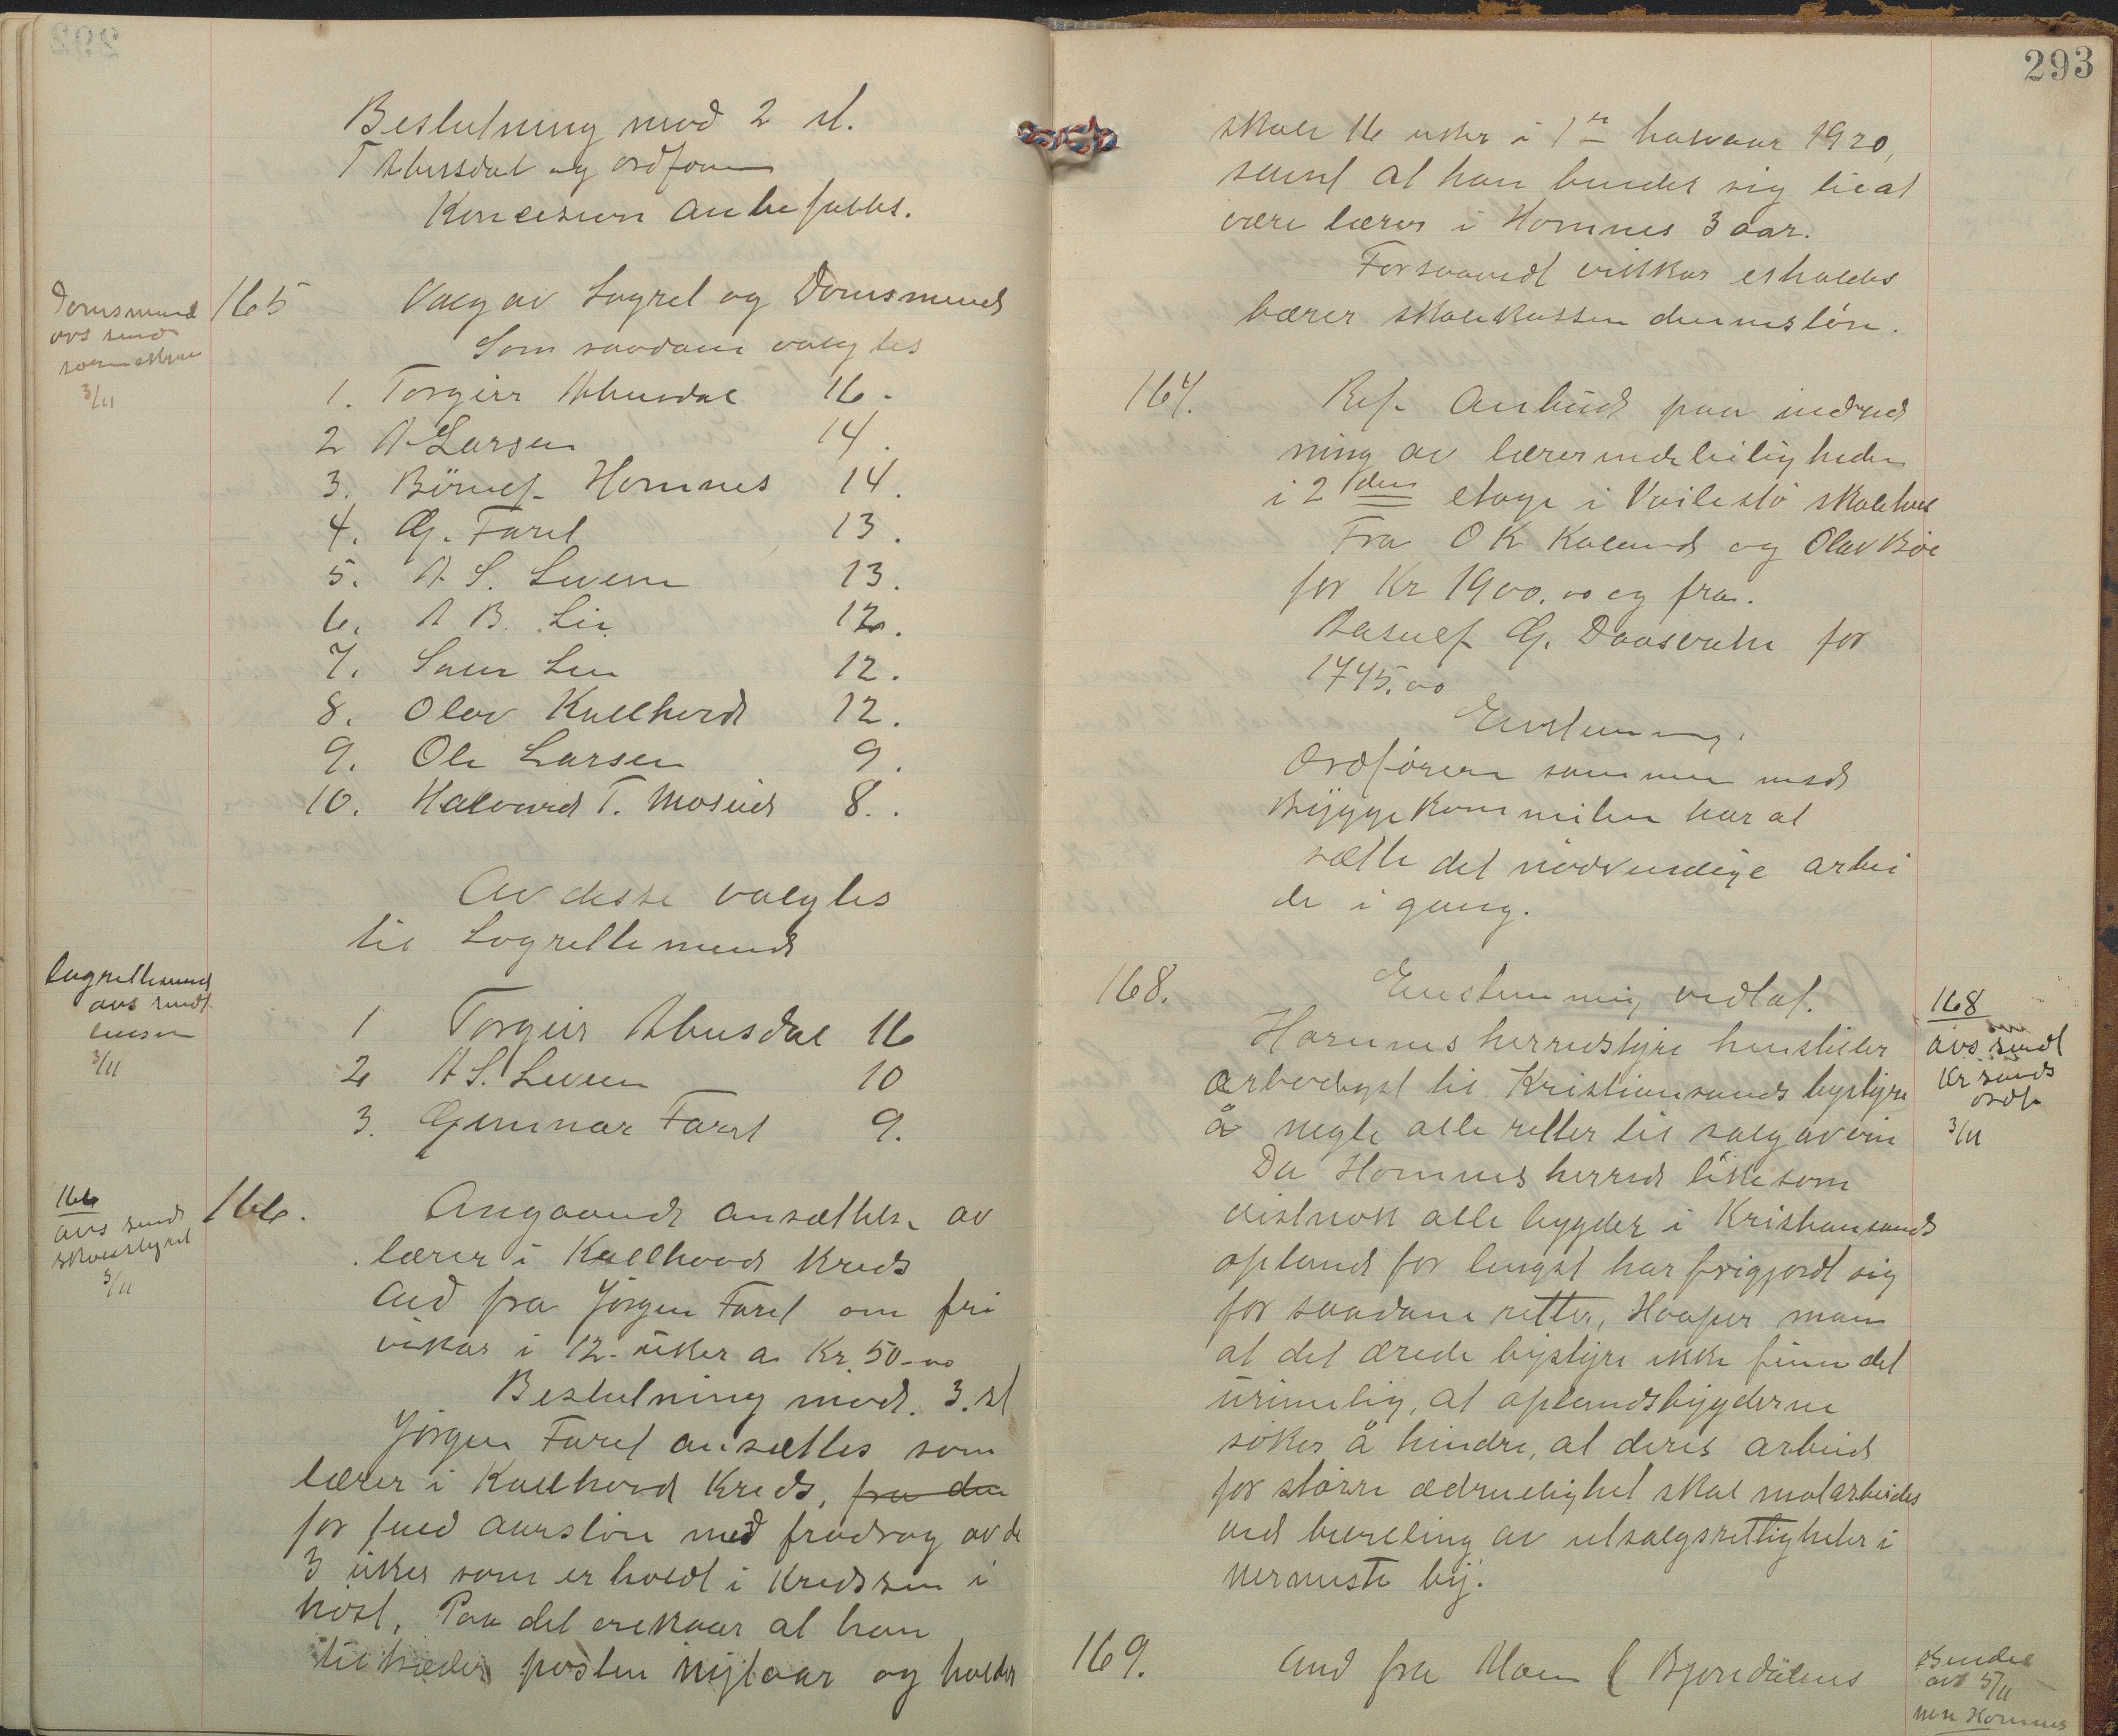 Beslutning mod 2 st.
T Abusdal og ordføreren
Koncesion anbefales.
Domsmænd
avs send
sorenskriver
3/11
165 Valg av Lagret og Domsmænd
Som saadane valgtes
1. Torgeir Abusdal 16.
2 A Larsen 14.
3. Børuf Hornnes 14.
4. G. Faret 13.
5. A. S. Liveen 13.
6. A B. Lie 12.
7. Samuel Lien 12.
8. Olav Kallhovd 12.
9. Ole Larsen 9.
10. Halvard T. Moseid 8.
Av disse valgtes
til Lagrettemænd
Lagrettemænd
avs sendt
lensm
3/11
1 Torgeir Abusdal 16
2 A S. Liveen 10
3. Gunnar Faret 9.
166
avs sendt
skolestyret
3/11
166. Angaaende ansættelse av
lærer i Kallhovd kreds
And fra Jørgen Faret om fri
vikar i 12 uker a Kr. 50.00
Beslutning mod. 3. st
Jørgen Faret ansættes som
lærer i Kallhovd Kreds, fra den
for fuld aarsløn med fradrag av de
3 uker som er holdt i kredsen i
høst. Paa det vilkaar at han
tiltræder posten nytaar og holder
293
skole 16 uker i 1ste halvaar 1920,
samt at han binder sig til at
være lærer i Hornnes 3 aar.
Forsaavidt vikar erholdes
bærer skolekassen dennes løn.
167. Ref. Anbud paa indred
ning av lærerindeleiligheden
i 2den etage i Veilestø skolehus
Fra O K Kaland og Olav Bøe
for Kr 1900.00 og fra.
Aasulf G. Daasvatn for
1745.00
Enstemmig.
Ordføreren sammen med
Byggekommiteen har at
sætte det nødvendige arbei
de i gang.
168. Enstemmig vedtat.
Hornnes herredstyre henstiller
ærbødigst til Kristiansands bystyre
å negte alle retter til salg av vin
Da Hornnes herred likesom
vistnok alle bygder i Kristiansands
opland for lengst har frigjordt sig
for saadane retter, Haaper man
at det ærede bystyre ikke finn det
urimelig, at oplandsbygderne
søker å hindre, at deres arbeid
for større ædruelighet skal motarbeides
ved bevilling av utsalgsrettigheter i
nermeste by.
168
avs sendt
Kr sands
ordf
3/11
169. And fra Mom f Bjorndalens
Sendt
avs 5/11
Hornnes